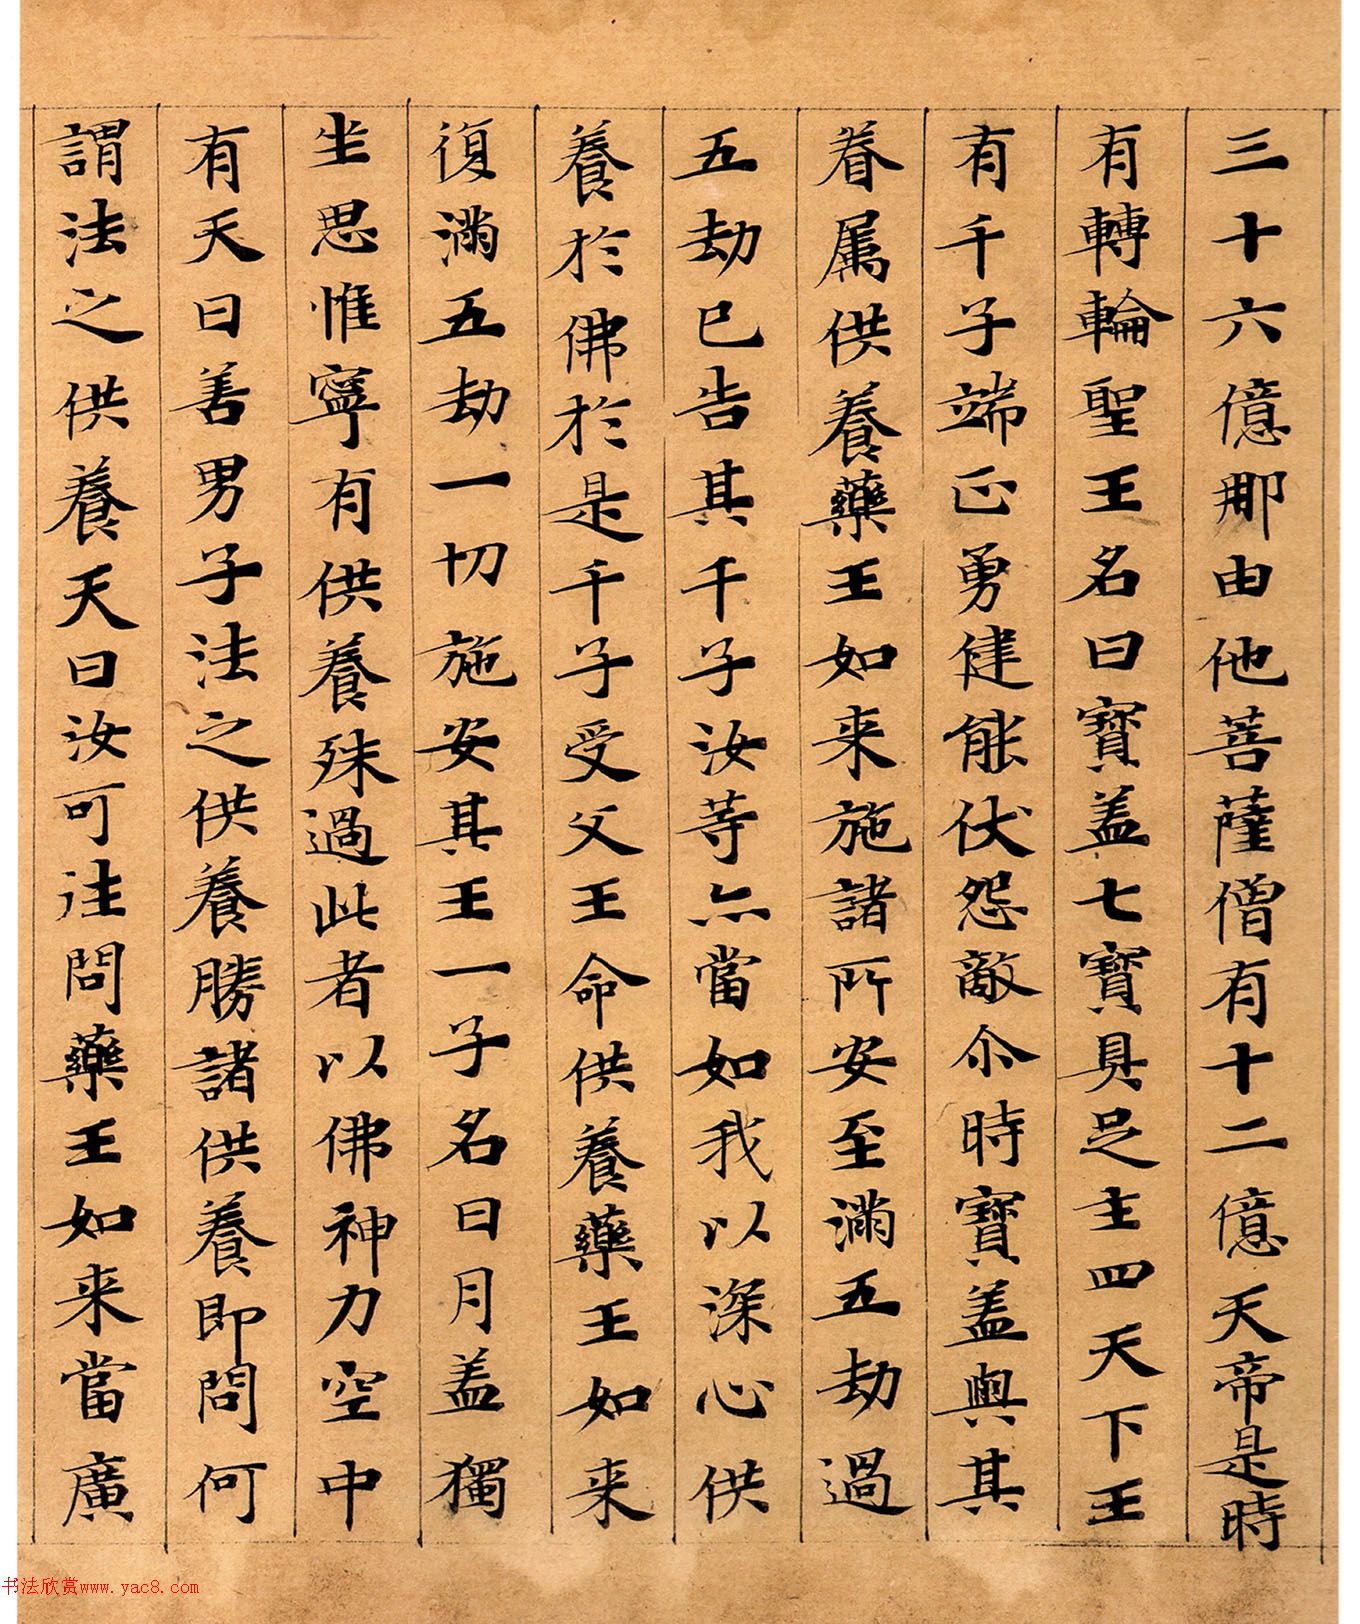 三十六億那由他菩薩僧有十二億天帝是時
有轉輪聖王名曰寶盖七寶具足主四天下王
有千子端正勇健能伏怨敵尒時寶盖與其
眷属供養藥王如来施諸所安至滿五劫過
五劫已告其千子汝等亦當如我以深心供
養於佛於是千子受父王命供養藥王如来
復滿五劫一切施安其王一子名曰月盖獨
坐思惟寧有供養殊過此者以佛神力空中
有天曰善男子法之供養勝諸供養即問何
謂法之供養天曰汝可往問藥王如来當廣
书法欣赏www.yac8.com